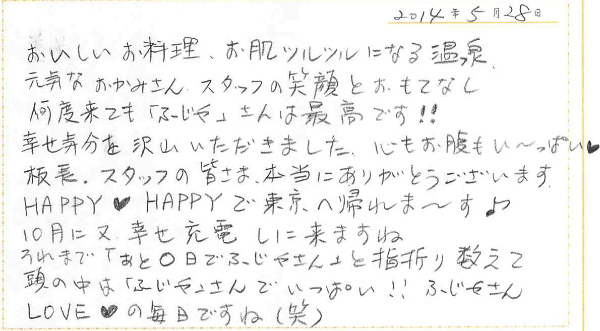 2014年5月28日
おいしいお料理、お肌ツルツルになる温泉、
元気なおかみさん、スタッフの笑顔とおもてなし
何度来ても「ふじや」さんは最高です!!
幸せ気分を沢山いただきました、心もお腹もい〜っぱい♥
板長、スタッフの皆さま、本当にありがとうございます。
HAPPY♥HAPPYで東京へ帰れま〜す♪
10月に又幸せ充電しに来ますね
それまで「あと〇日でふじやさん」と指折り数えて
頭の中は「ふじや」さんでいっぱい!!ふじやさん
LOVE♥の毎日ですね(笑)